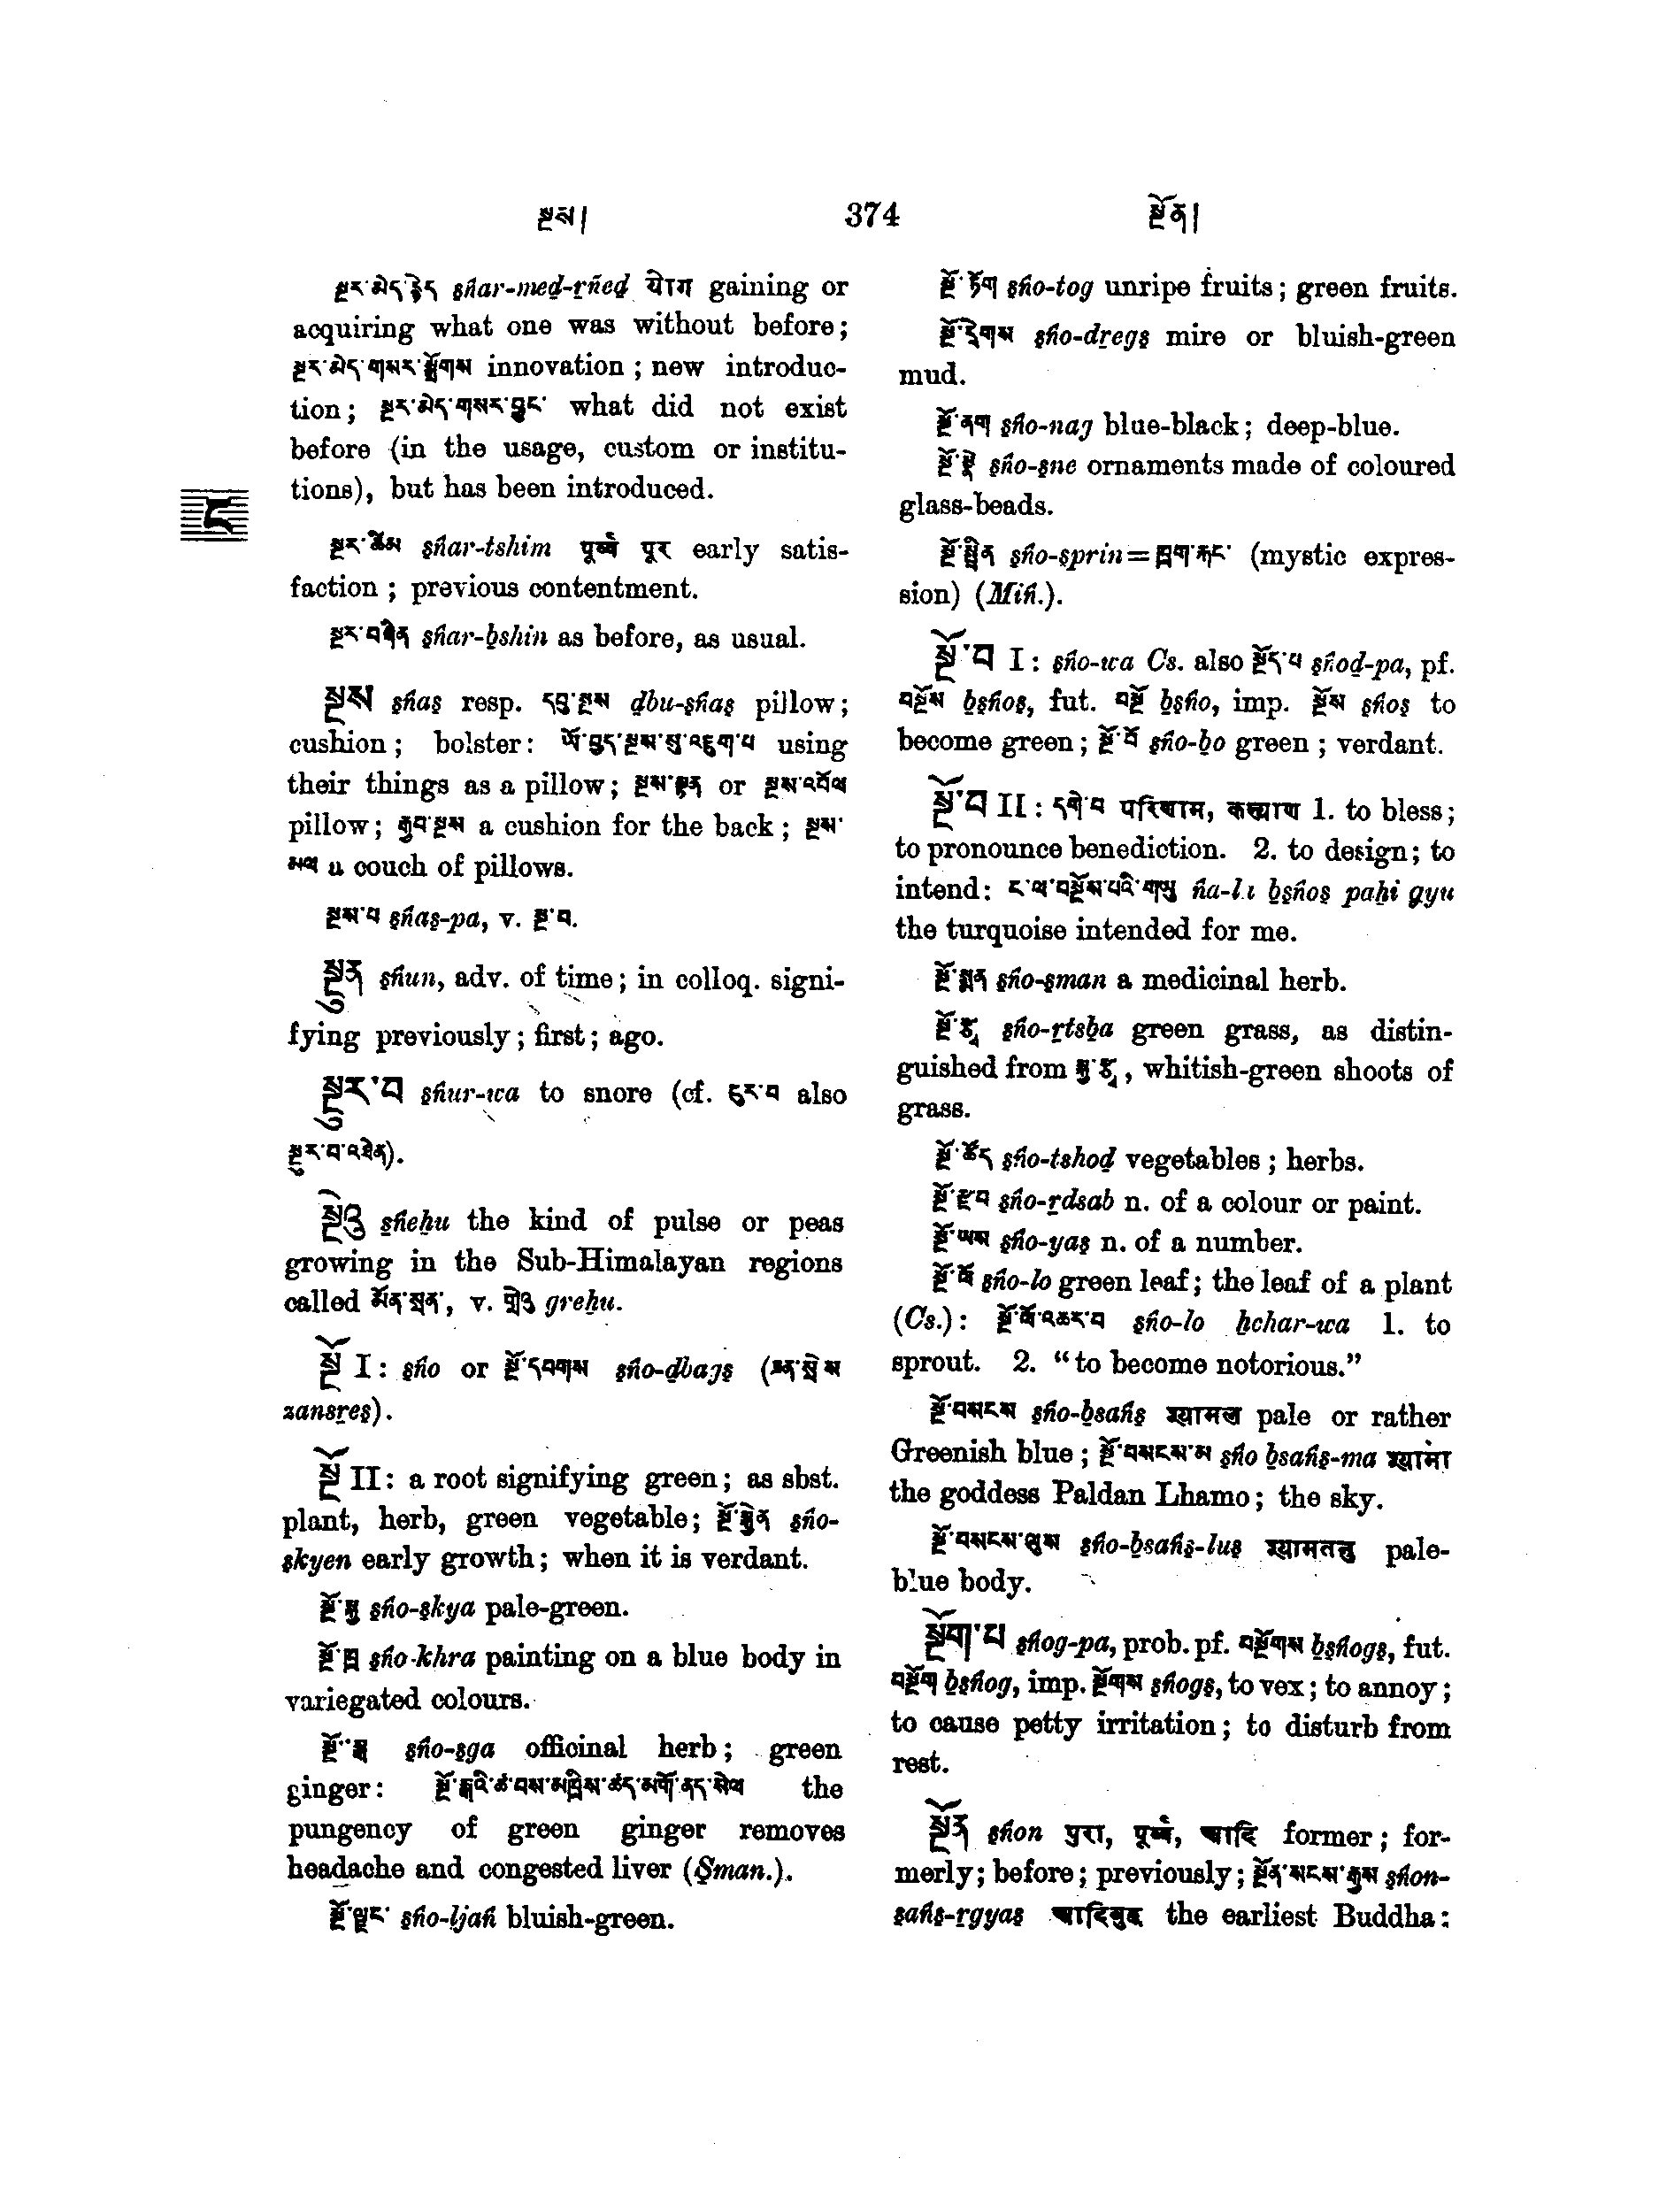 སྔས།
374
སྔོན།
སྔར་མེད་རྙེད sṅar-meḏ-ṟñeḏ योग gaining or
acquiring what one was without before;
སྔར་མེད་གསར་སློགས innovation ; new introduc-
tion; སྔར་མེད་གསར་བྱུང་ what did not exist
before (in the usage, custom or institu-
tions), but has been introduced.
ང
སྔར་ཚིམ s̱ṅar-tshim पूर्व्व पूर early satis-
faction ; previous contentment.
སྔར་བཞིན s̱ṅar-ḇshin as before, as usual.
སྔས s̱ṅas̱ resp. དབུ་སྔས ḏbu-s̱ṅas̱ pillow;
cushion; bolster: ཡོ་བྱད་སྔས་སུ་འཇུག་པ using
their things as a pillow; སྔས་སྟན or སྔས་འབོལ
pillow; རྒྱབ་སྔས a cushion for the back; སྔས་
མལ a couch of pillows.
སྔས་པ s̱ṅas̱-pa, v. སྔ་བ.
སྔུན s̱ṅun, adv. of time; in colloq. signi-
fying previously; first; ago.
སྔུར་བ s̱ṅur-wa to snore (cf. ངུར་བ also
སྔུར་བ་འཐེན).
སྔེའུ s̱ṅeẖu the kind of pulse or peas
growing in the Sub-Himalayan regions
called མོན་སྲན་, v. གྲེའུ greẖu.
སྔོ I: s̱ṅo or སྔོ་དབགས s̱ṅo-ḏbags̱ (ཟན་སྲེས
zansṟes̱).
སྔོ II: a root signifying green; as sbst.
plant, herb, green vegetable; སྔོ་སྐྱེན s̱ṅo-
s̱kyen early growth; when it is verdant.
སྔོ་སྐྱ s̱ṅo-s̱kya pale-green.
སྔོ་ཁྲ s̱ṅo-khra painting on a blue body in
variegated colours.
སྔོ་སྒ s̱ṅo-s̱ga officinal herb; green
ginger: སྔོ་སྒའི་ཚ་བས་མཁྲིས་ཚད་མགོ་ནད་སེལ the
pungency of green ginger removes
headache and congested liver (S̱man.).
སྔོ་ལྗང་ s̱ṅo-ljaṅ bluish-green.
སྔོ་ཏོག s̱ṅo-tog unripe fruits; green fruits.
སྔོ་དྲེགས s̱ṅo-dṟegs̱ mire or bluish-green
mud.
སྔོ་ནག s̱ṅo-nag blue-black; deep-blue.
སྔོ་སྣེ s̱ṅo-s̱ne ornaments made of coloured
glass-beads.
སྔོ་སྤྲིན s̱ṅo-s̱prin=ཁྲག་རྐང་ (mystic expres-
sion) (Miṅ.).
སྔོ་བ I: s̱ṅo-wa Cs. also སྔོད་པ s̱ṅoḏ-pa, pf.
བསྔོས ḇs̱ṅos̱, fut. བསྔོ ḇs̱ṅo, imp. སྔོས s̱ṅos̱ to
become green; སྔོ་བོ s̱ṅo-ḇo green ; verdant.
སྔོ་བ II: དགེ་བ परिणाम, कल्याण 1. to bless;
to pronounce benediction. 2. to design; to
intend: ང་ལ་བསྔོས་པའི་གཡུ ṅa-la ḇs̱ṅos̱ paẖi g̱yu
the turquoise intended for me.
སྔོ་སྨན s̱ṅo-s̱man a medicinal herb.
སྔོ་རྩྭ s̱ṅo-ṟtsḇa green grass, as distin-
guished from སྐྱ་རྩྭ, whitish-green shoots of
grass.
སྔོ་ཚོད s̱ṅo-tshoḏ vegetables; herbs.
སྔོ་རྫབ s̱ṅo-ṟdsab n. of a colour or paint.
སྔོ་ཡས s̱ṅo-yas̱ n. of a number.
སྔོ་ལོ s̱ṅo-lo green leaf; the leaf of a plant
(Cs.): སྔོ་ལོ་འཆར་བ s̱ṅo-lo ẖchar-wa 1. to
sprout. 2. “to become notorious.”
སྔོ་བསངས s̱ṅo-ḇsaṅs̱ श्यामल pale or rather
Greenish blue; སྔོ་བསངས་མ s̱ṅo ḇsaṅs̱-ma श्यामा
the goddess Paldan Lhamo; the sky.
སྔོ་བསངས་ལུས s̱ṅo-ḇsaṅs̱-lus̱ श्यामतनु pale-
blue body.
སྔོག་པ s̱ṅog-pa, prob. pf. བསྔོགས ḇs̱ṅogs̱, fut.
བསྔོག ḇs̱ṅog, imp. སྔོགས s̱ṅogs̱, to vex; to annoy;
to cause petty irritation; to disturb from
rest.
སྔོན s̱ṅon पुरा, पूर्व्व, आदि former; for-
merly; before; previously; སྔོན་སངས་རྒྱས s̱ṅon-
s̱aṅs̱-ṟgyas̱ आदिबुद्ध the earliest Buddha: